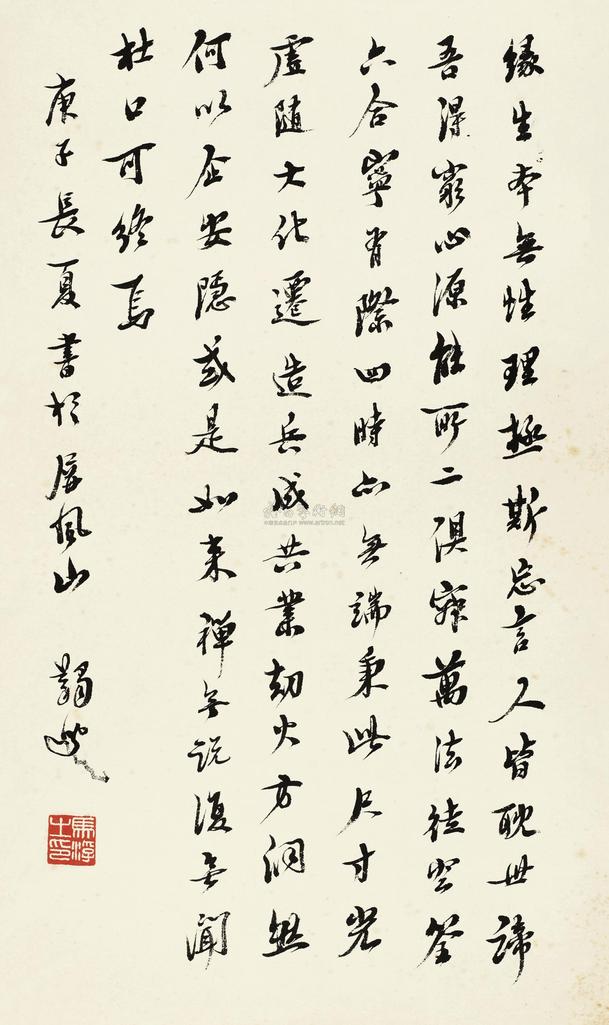 緣生本無性理極斯忘言人皆耽世諦
吾得窮心源能所二俱寂萬法徒空筌
六合寧有際四時亦無端秉此尺寸光
虛隨大化遷造兵成共業劫火方洞然
何以企安隱或是如來禪無說復無聞
杜口可終焉
庚子長夏書於屏風山 蠲叟
馬浮之印
雅昌藝術網
www.artron.net